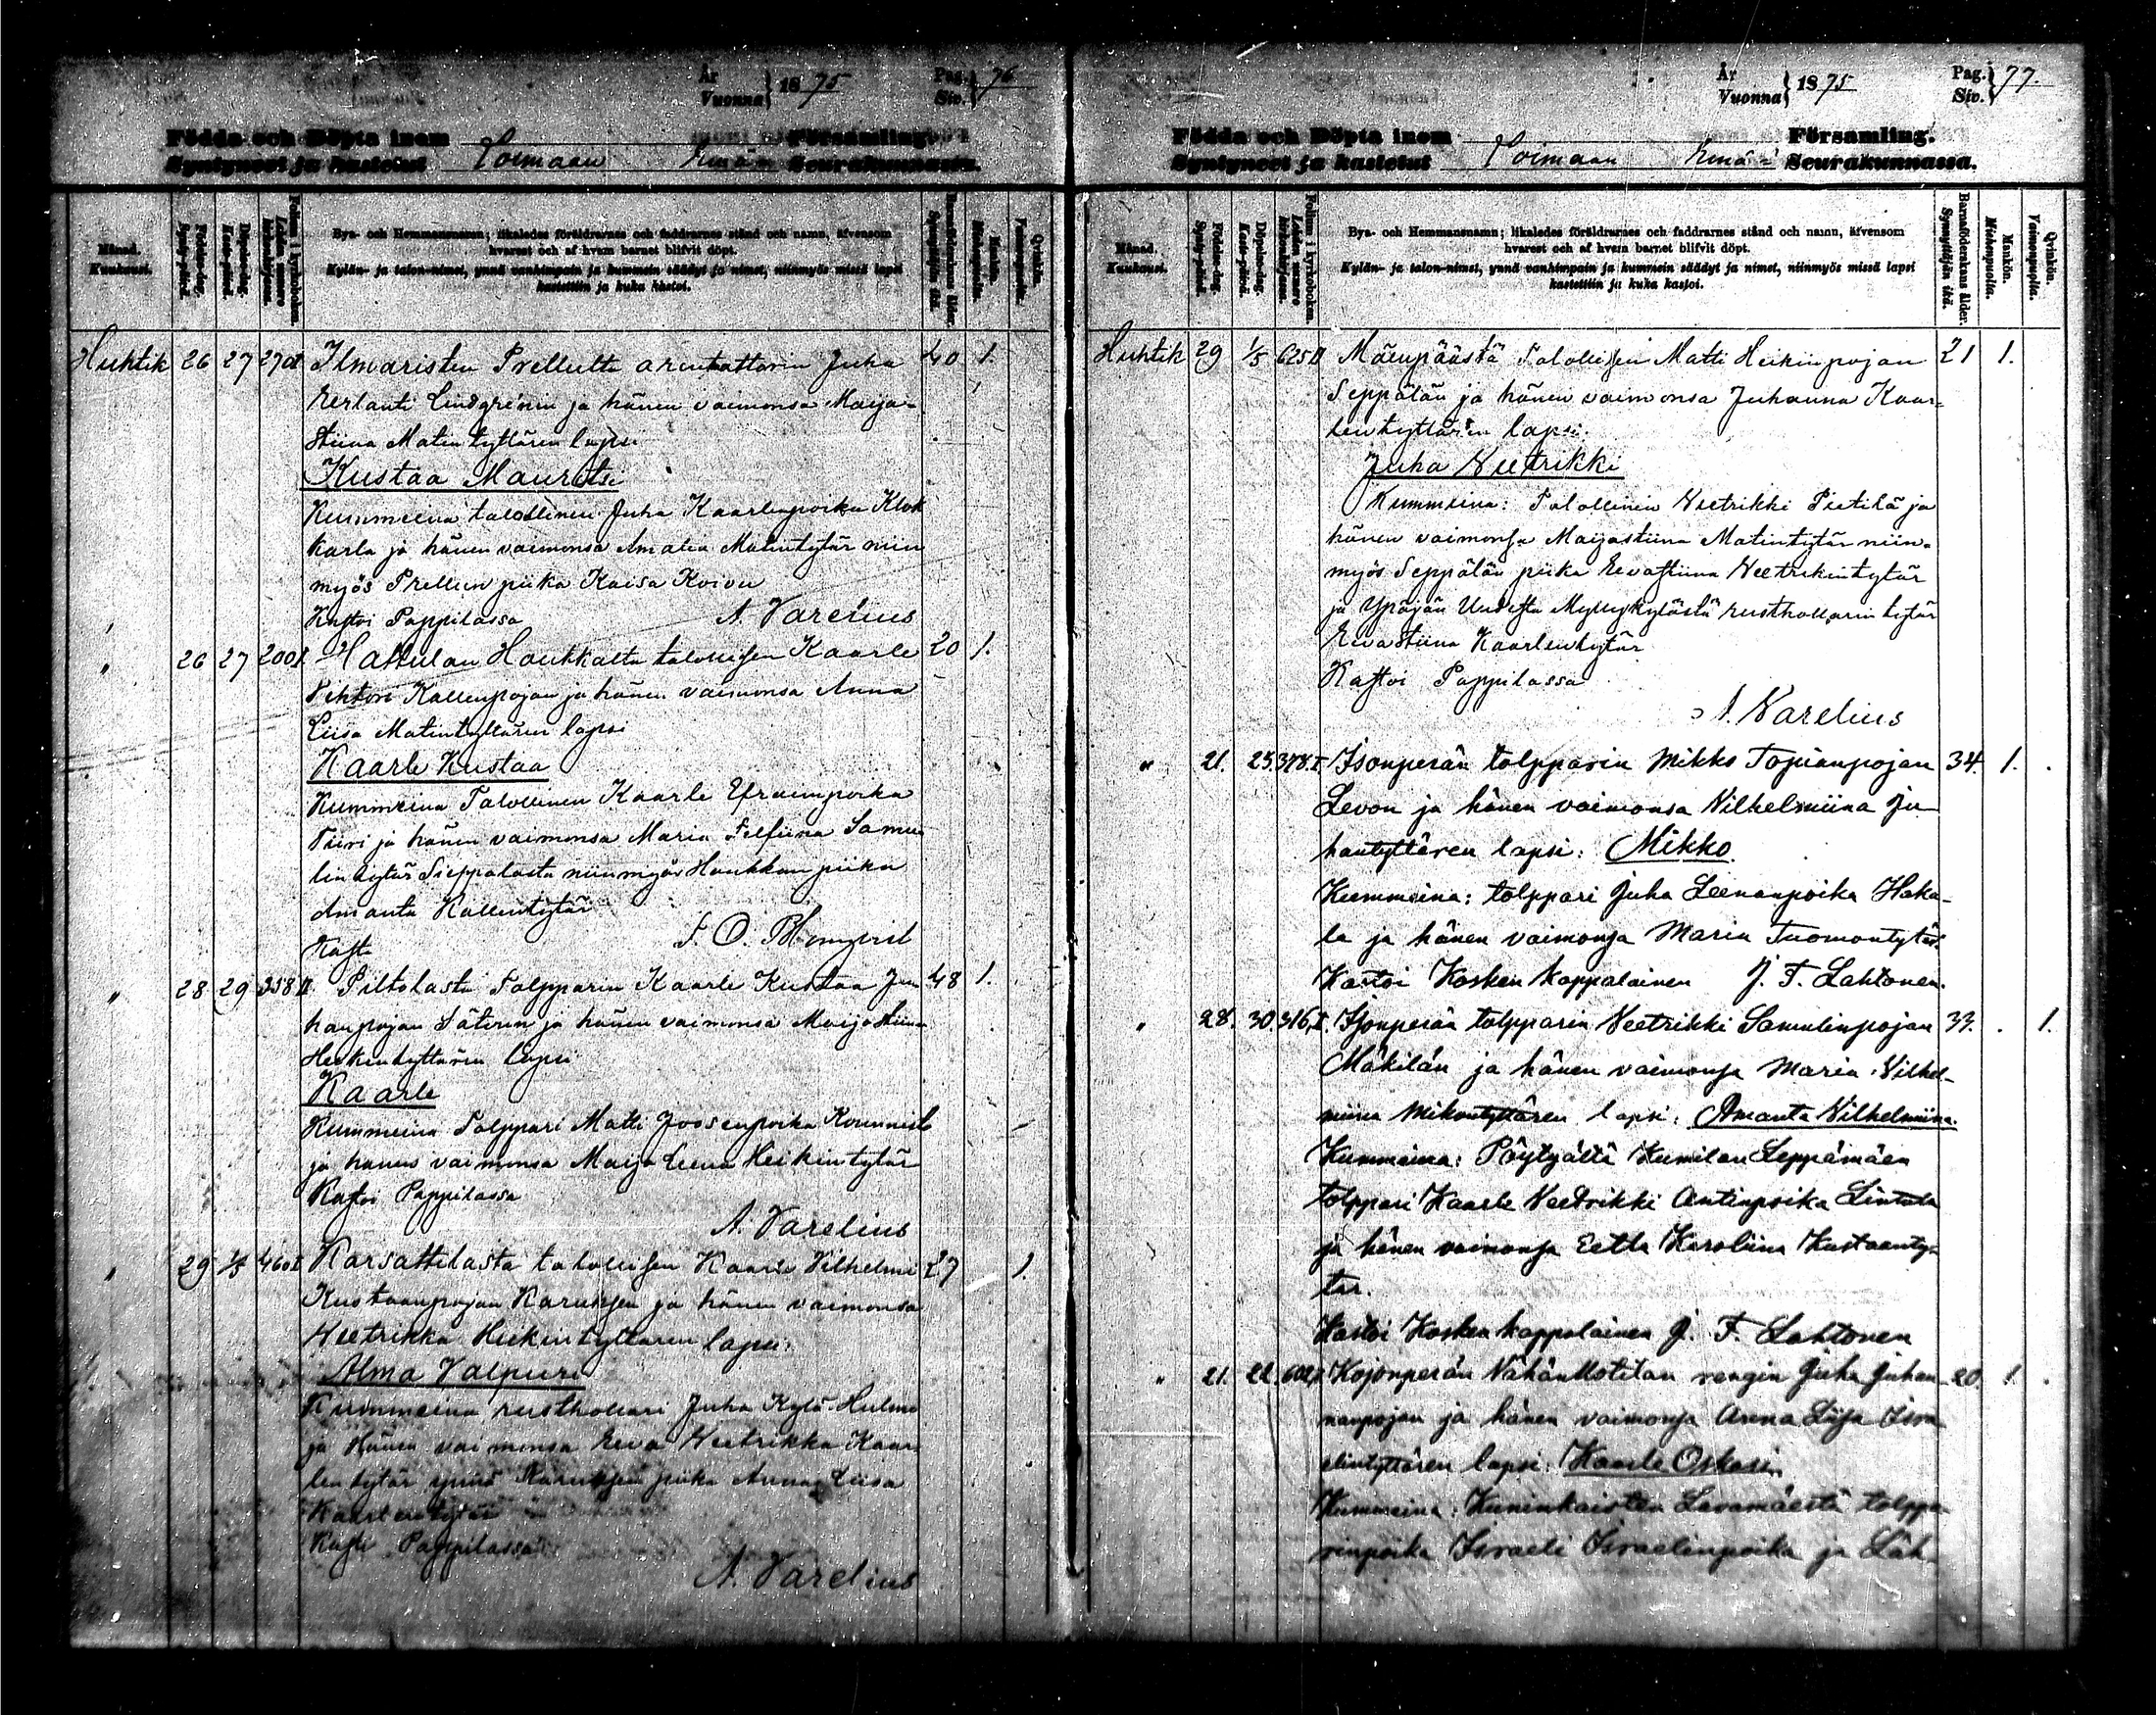 År
Vuonna } 1875
Pag.
Siv. } 76
Födda och Döpta inom Församling.
Syntyneet ja kastetut Loimaan Emä= Seurakunnassa.
Månad.
Kuukausi.
Födelse-dag.
Synty-päivä.
Döpelse-dag.
Kaste-päivä.
Folium i kyrkoboken.
Lehden numero kirkonkirjassa.
Bys- och Hemmansnamn; likaledes föräldrarnes och faddrarnes stånd och namn, äfvensom
hvarest och af hvem barnet blifvit döpt.
Kylän- ja talon-nimet, ynnä vanhimpain ja kummein säädyt ja nimet, niinmyös missä lapsi
kastettiin ja kuka kastoi.
Barnaföderskans ålder.
Synnyttäjän ikä.
Mankön.
Miehenpuolia.
Qvinkön.
Vaimonpuolia.
Huhtik 26 27 270 I Ilmaristen Prellultta arentattorin Juha 40 1.
Eerlanti Lindgrenin ja hänen vaimonsa Maija=
stiina Matintyttären lapsi
Kustaa Mauritsi
Kummeina talollinen Juha Kaarlenpoika Klok
karla ja hänen vaimonsa Amalia Matintytär niin
myös Prellun piika Kaisa Koivu
Kastoi Pappilassa A. Varelius
" 26 27 200 I Hattulan Haukkalta talollisen Kaarle 20 1.
Vihtori Kallenpojan ja hänen vaimonsa Anna
Liisa Matintyttären lapsi
Kaarle Kustaa
Kummeina Talollinen Kaarle Efraiminpoika
ja hänen vaimonsa Maria Samu
lintytär niinmyös Haukkan piika
Amanta Kallentytär
Kasti F. O. Blomqvist
" 28 29 358 II Piltolasta Tolpparin Kaarle Kustaa Ju 48 1.
hanpojan ja hänen vaimonsa Maijastiina
Heikintyttären lapsi
Kaarle
Kummeina Tolppari Matti Joosenpoika
ja hänen vaimonsa Maija Leena Heikintytär
Kastoi Pappilassa
A. Varelius
" 29 1/5 460 I Karsattilasta talollisen Kaarle Vilhelmi 27 1.
Kustaanpojan ja hänen vaimonsa
Veetrikka Heikintyttären lapsi
Alma Valpuri
Kummeina rusthollari Juha Kylä-
ja hänen vaimonsa Eeva Veetrikka Kaar
lentytär piika Anna Liisa
Kaarlentytär
Kasti Pappilassa
A. Varelius
År
Vuonna } 1875
Pag.
Siv. } 77.
Födda och Döpta inom Församling.
Syntyneet ja kastetut Loimaan Emä= Seurakunnassa.
Månad.
Kuukausi.
Födelse-dag.
Synty-päivä.
Döpelse-dag.
Kaste-päivä.
Folium i kyrkoboken.
Lehden numero kirkonkirjassa.
Bys- och Hemmansnamn; likaledes föräldrarnes och faddrarnes stånd och namn, äfvensom
hvarest och af hvem barnet blifvit döpt.
Kylän- ja talon-nimet, ynnä vanhimpain ja kummein säädyt ja nimet, niinmyös missä lapsi
kastettiin ja kuka kastoi.
Barnaföderskans ålder.
Synnyttäjän ikä.
Mankön.
Miehenpuolia.
Qvinkön.
Vaimonpuolia.
Huhtik 29 1/5 625 II Mäenpäästä Talollisen Matti Heikinpojan 21 1.
Seppälän ja hänen vaimonsa Juhanna Kaar=
lentyttären lapsi.
Juha Veetrikki
Kummeina: Talollinen Veetrikki Pietilä ja
hänen vaimonsa Maijastiina Matintytär niin=
myös Seppälän piika Eevastiina Veetrikintytär
ja Ypäjän Uudesta Myllykylästä rusthollarin tytär
Eevastiina Kaarlentytär
Kastoi Pappilassa
A. Varelius
" 21. 25. 378. I Isonperän tolpparin Mikko Topianpojan 34. 1.
Levon ja hänen vaimonsa Vilhelmiina Ju
hantyttären lapsi: Mikko
Kummeina: tolppari Juha Leenanpoika Haka-
la ja hänen vaimonsa Maria Tuomontytär.
Kastoi Kosken kappalainen J. F. Lahtonen.
" 28. 30. 316, I Isonperän tolpparin Veetrikki Samulinpojan 33. 1.
Mäkilän ja hänen vaimonsa Maria Vilhel-
miina Mikontyttären lapsi: Amanta Vilhelmiina.
Kummeina: Pöytyältä Kumilan Leppämäen
tolppari Kaarle Veetrikki Antinpoika Lintula
ja hänen vaimonsa Eetla Karoliina Kustaanty-
tär.
Kastoi Kosken kappalainen J. F. Lahtonen
" 21. 22. 602, I Kojonperän Vähän Motilan rengin Juha Juhan 20. 1.
nanpojan ja hänen vaimonsa Anna Liisa Isra
elintyttären lapsi: Kaarle Oskari.
Kummeina: Kuninkaisten Levamäestä tolppa
rinpoika Israeli Israelinpoika ja Läh